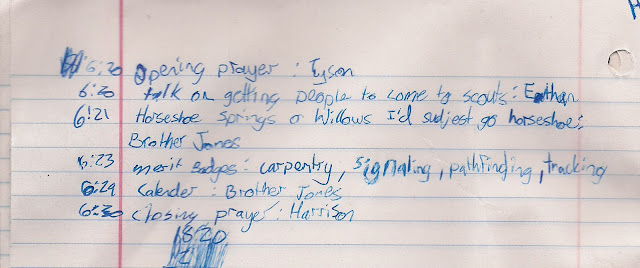 6:20 Opening prayer : Tyson
6:20 talk on getting people to come to scouts : Eathan
6:21 Horseshoe springs or Willows I'd sudjest go horseshoe :
Brother Jones
6:23 merit Badges : carpentry, signaling, pathfinding, tracking
6:29 Calender : Brother Jones
6:30 closing prayer : Harrison
8:20